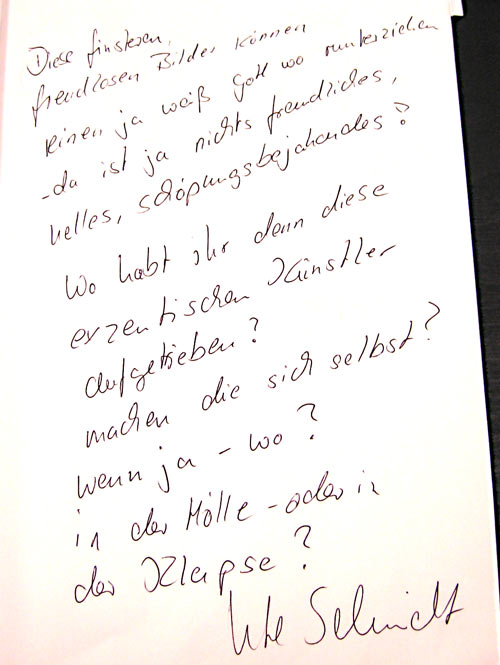 Diese finsteren,
freudlosen Bilder können
einen ja weiß Gott wo runterziehen
- da ist ja nichts freundliches,
helles, schöpfungsbejahendes?
Wo habt ihr denn diese
exzentischen Künstler
aufgetrieben?
machen die sich selbst?
wenn ja - wo?
in der Hölle - oder in
der Klapse?
Ute Schmidt